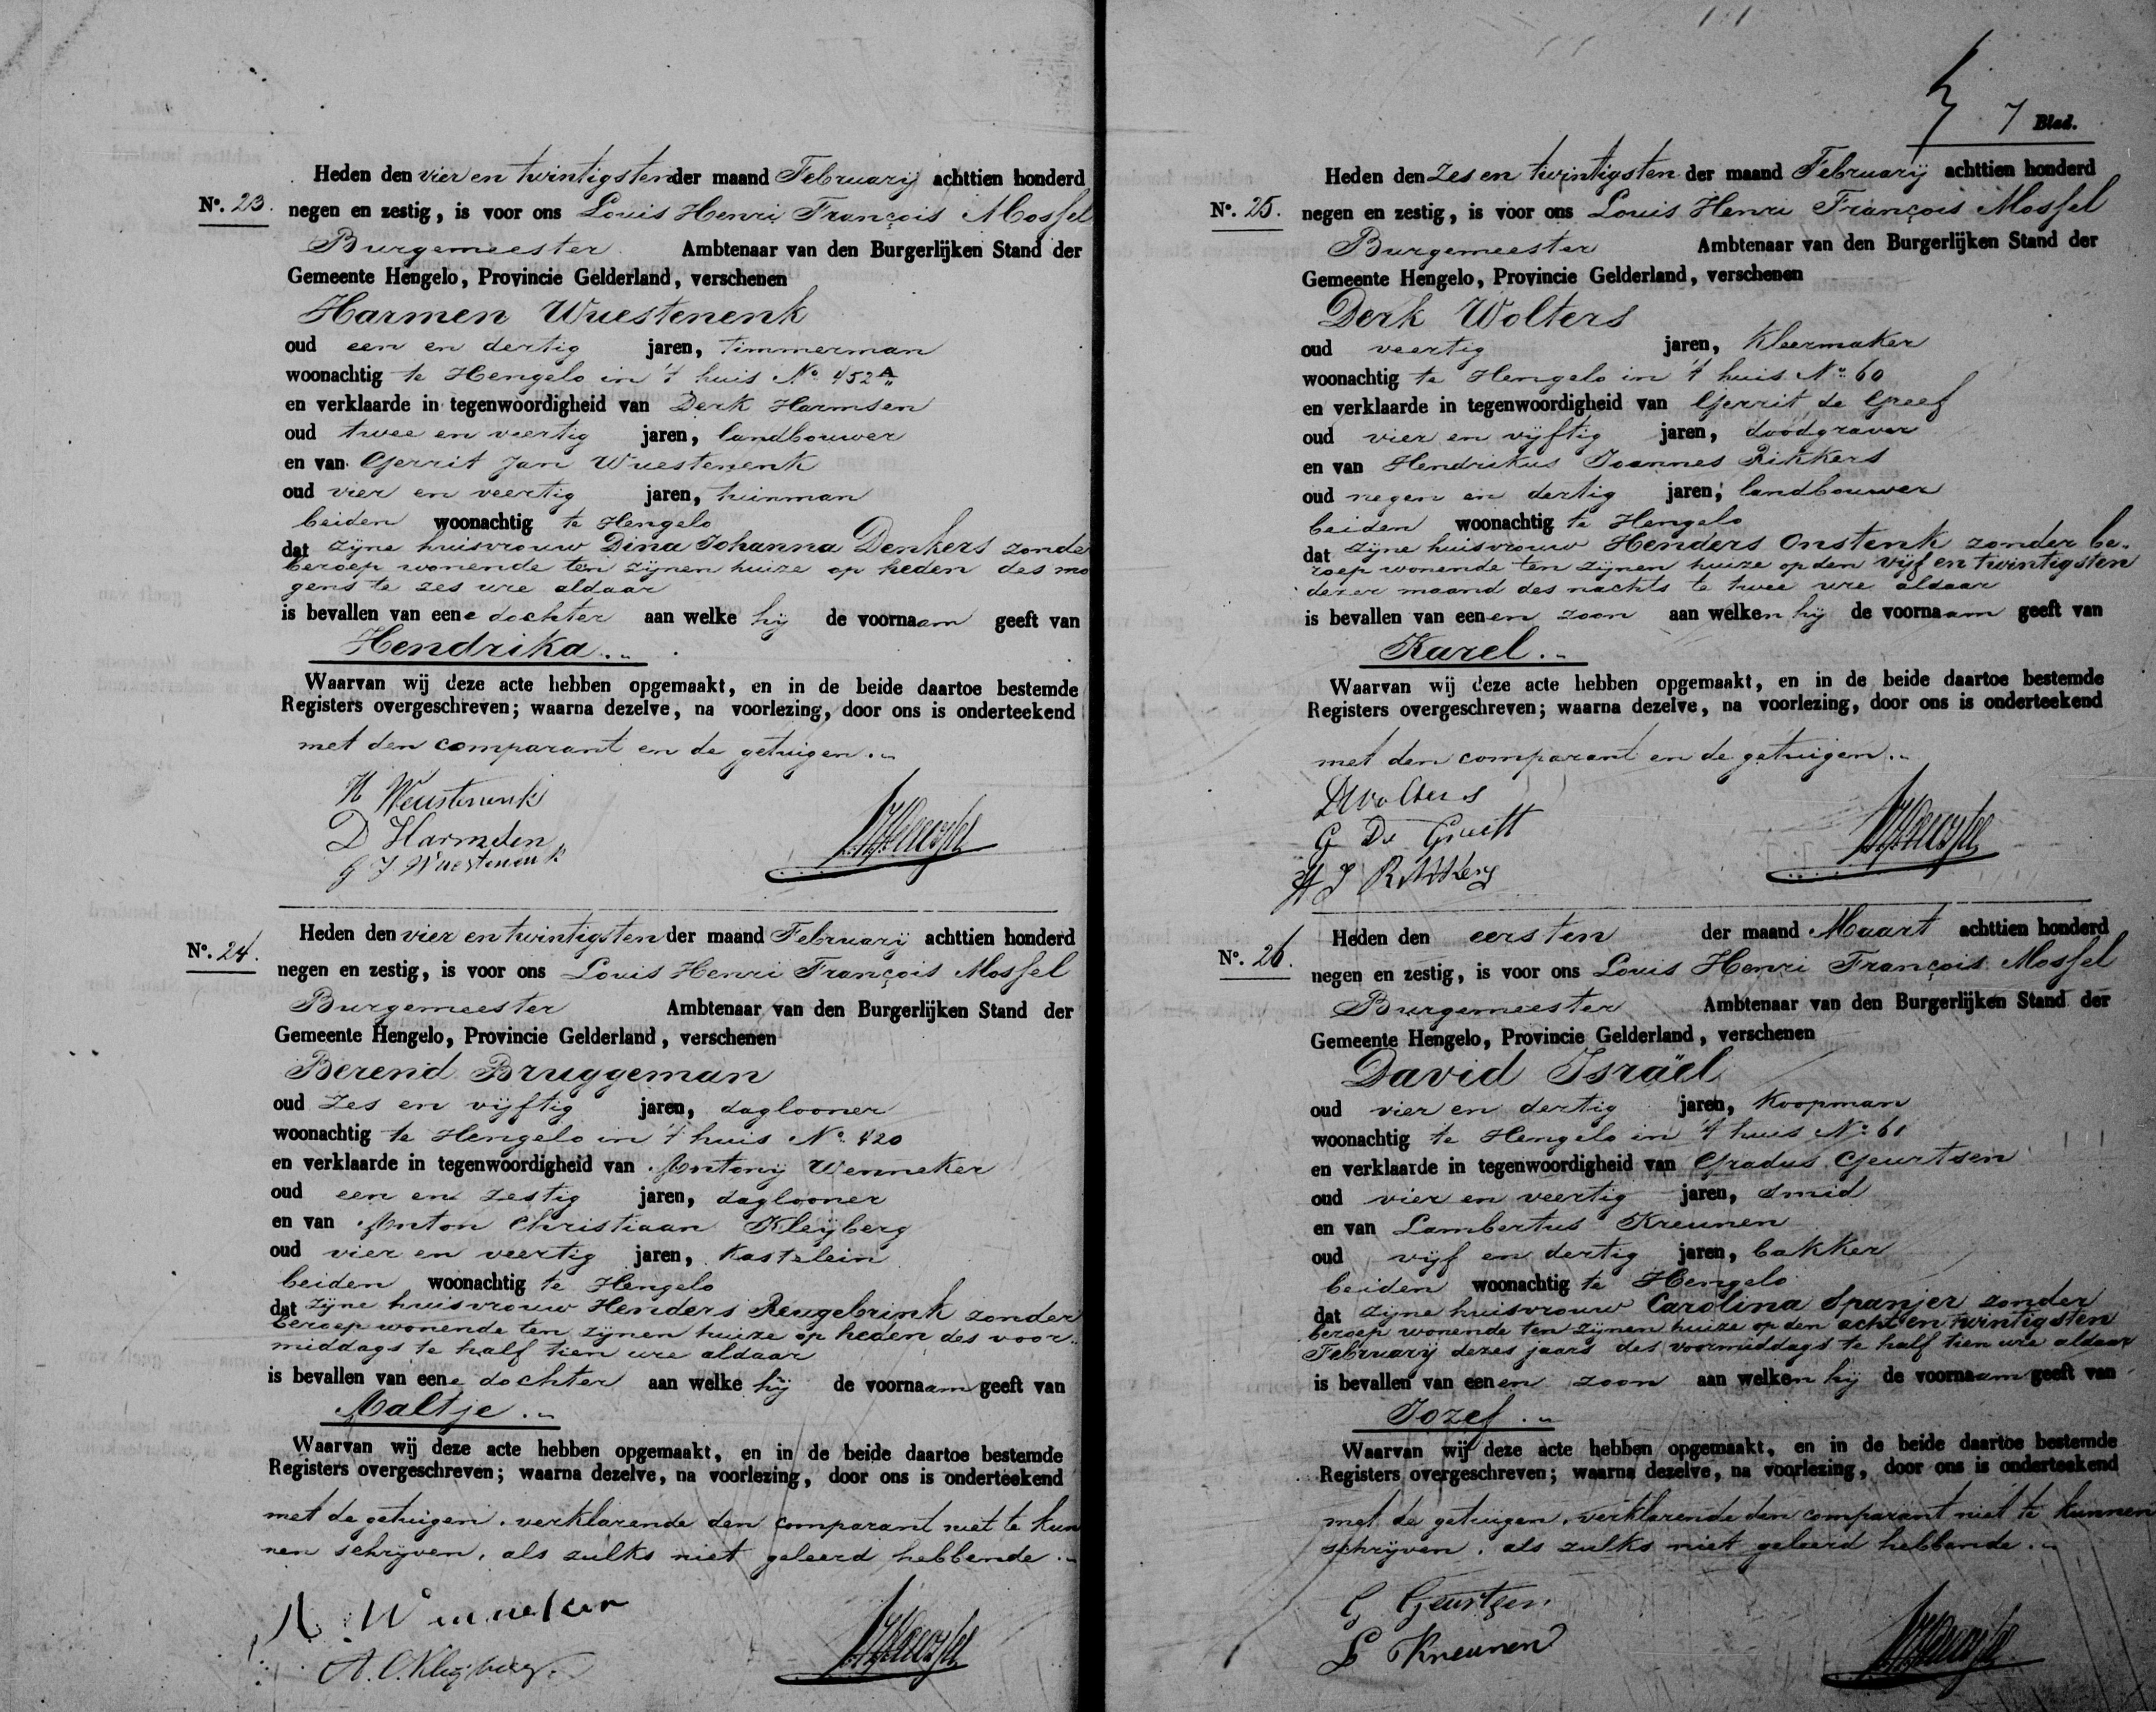 Heden den vier en twintigsten der maand Februarij achttien honderd
No. 23. negen en zestig, is voor ons Louis Henri François Mossel
Burgemeester Ambtenaar van den Burgerlijken Stand der
Gemeente Hengelo, Provincie Gelderland, verschenen
Harmen Wuestenenk
oud een en dertig jaren, timmerman
woonachtig te Hengelo in 't huis No 452 A
en verklaarde in tegenwoordigheid van Derk Harmsen
oud twee en veertig jaren, landbouwer
en van Gerrit Jan Wuestenenk
oud vier en veertig jaren, tuinman
beiden woonachtig te Hengelo
dat zijne huisvrouw Dina Johanna Denkers zonde
beroep wonende ten zijnen huize op heden des mo
gens te zes ure aldaar
is bevallen van eene dochter aan welke hij de voornaam geeft van
Hendrika
Waarvan wij deze acte hebben opgemaakt, en in de beide daartoe bestemde
Registers overgeschreven; waarna dezelve, na voorlezing, door ons is onderteekend
met den comparant en de getuigen
H Weustenenk
D Harmsen
G J Wuestenenk
Heden den vier en twintigsten der maand Februarij achttien honderd
No. 24. negen en zestig, is voor ons Louis Henri François Mossel
Burgemeester Ambtenaar van den Burgerlijken Stand der
Gemeente Hengelo, Provincie Gelderland, verschenen
Berend Bruggeman
oud zes en vijftig jaren, daglooner
woonachtig te Hengelo in 't huis No 420
en verklaarde in tegenwoordigheid van Antonij Wenneker
oud een en zestig jaren, daglooner
en van Anton Christiaan Kleijberg
oud vier en veertig jaren, kastelein
beiden woonachtig te Hengelo
dat zijne huisvrouw Henders Reugebrink zonder
beroep wonende ten zijnen huize op heden des voor
middags te half tien ure aldaar
is bevallen van eene dochter aan welke hij de voornaam geeft van
Aaltje
Waarvan wij deze acte hebben opgemaakt, en in de beide daartoe bestemde
Registers overgeschreven; waarna dezelve, na voorlezing, door ons is onderteekend
met de getuigen, verklarende den comparant niet te kun
nen schrijven, als zulks niet geleerd hebbende
A. Wenneker
A. C. Kleijberg.
7 Blad.
Heden den zes en twintigsten der maand Februarij achttien honderd
No. 25. negen en zestig, is voor ons Louis Henri François Mossel
Burgemeester Ambtenaar van den Burgerlijken Stand der
Gemeente Hengelo, Provincie Gelderland, verschenen
Derk Wolters
oud veertig jaren, kleermaker
woonachtig te Hengelo in 't huis No 60
en verklaarde in tegenwoordigheid van Gerrit de Greef
oud vier en vijftig jaren, doodgraver
en van Hendrikus Joannes Rikkers
oud negen en dertig jaren, landbouwer
beiden woonachtig te Hengelo
dat zijne huisvrouw Henders Onstenk zonder be-
roep wonende ten zijnen huize op den vijf en twintigsten
dezer maand des nachts te twee ure aldaar
is bevallen van eenen zoon aan welken hij de voornaam geeft van
Karel
Waarvan wij deze acte hebben opgemaakt, en in de beide daartoe bestemde
Registers overgeschreven; waarna dezelve, na voorlezing, door ons is onderteekend
met den comparant en de getuigen
D Wolters
G De
H J Rikkers
Heden den eersten der maand Maart achttien honderd
No. 26. negen en zestig, is voor ons Louis Henri François Mossel
Burgemeester Ambtenaar van den Burgerlijken Stand der
Gemeente Hengelo, Provincie Gelderland, verschenen
David Israël
oud vier en dertig jaren, koopman
woonachtig te Hengelo in 't huis No 61
en verklaarde in tegenwoordigheid van Gradus Geurtsen
oud vier en veertig jaren, smid
en van Lambertus Kreunen
oud vijf en dertig jaren, bakker
beiden woonachtig te Hengelo
dat zijne huisvrouw Carolina Spanjer zonder
beroep wonende ten zijnen huize op den acht en twintigsten
Februarij dezes jaars des voormiddags te half tien ure aldaar
is bevallen van eenen zoon aan welken hij de voornaam geeft van
Jozef
Waarvan wij deze acte hebben opgemaakt, en in de beide daartoe bestemde
Registers overgeschreven; waarna dezelve, na voorlezing, door ons is onderteekend
met de getuigen, verklarende den comparant niet te kunnen
schrijven, als zulks niet geleerd hebbende
G Geurtsen
L Kreunen